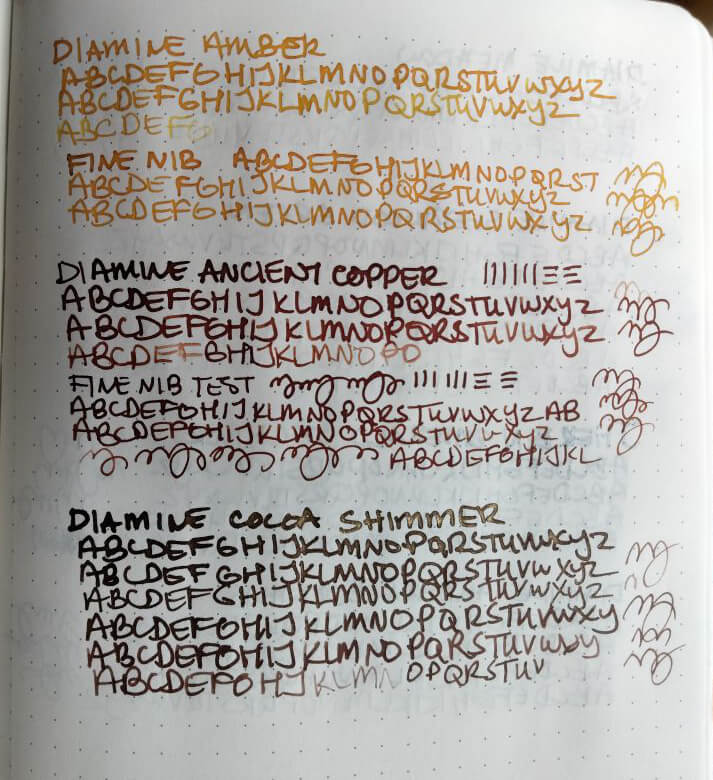 DIAMINE AMBER
ABCDEFGHIJKLMNOPQRSTUVWXYZ
ABCDEFGHIJKLMNOPQRSTUVWXYZ
ABCDEFG
FINE NIB ABCDEFGHIJKLMNOPQRST
ABCDEFGHIJKLMNOPQRSTUVWXYZ
ABCDEFGHIJKLMNOPQRSTUVWXYZ
DIAMINE ANCIENT COPPER
ABCDEFGHIJKLMNOPQRSTUVWXYZ
ABCDEFGHIJKLMNOPQRSTUVWXYZ
ABCDEFGHIJKLMNOPQ
FINE NIB TEST
ABCDEFGHIJKLMNOPQRSTUVWXYZ AB
ABCDEFGHIJKLMNOPQRSTUVWXYZ
ABCDEFGHIJKL
DIAMINE COCOA SHIMMER
ABCDEFGHIJKLMNOPQRSTUVWXYZ
ABCDEFGHIJKLMNOPQRSTUVWXYZ
ABCDEFGHIJKLMNOPQRSTUVWXYZ
ABCDEFGHIJKLMNOPQRSTUVWXY
ABCDEFGHIJKLMNOPQRSTUVWXY
ABCDEFGHIJKLMNOPQRSTUV